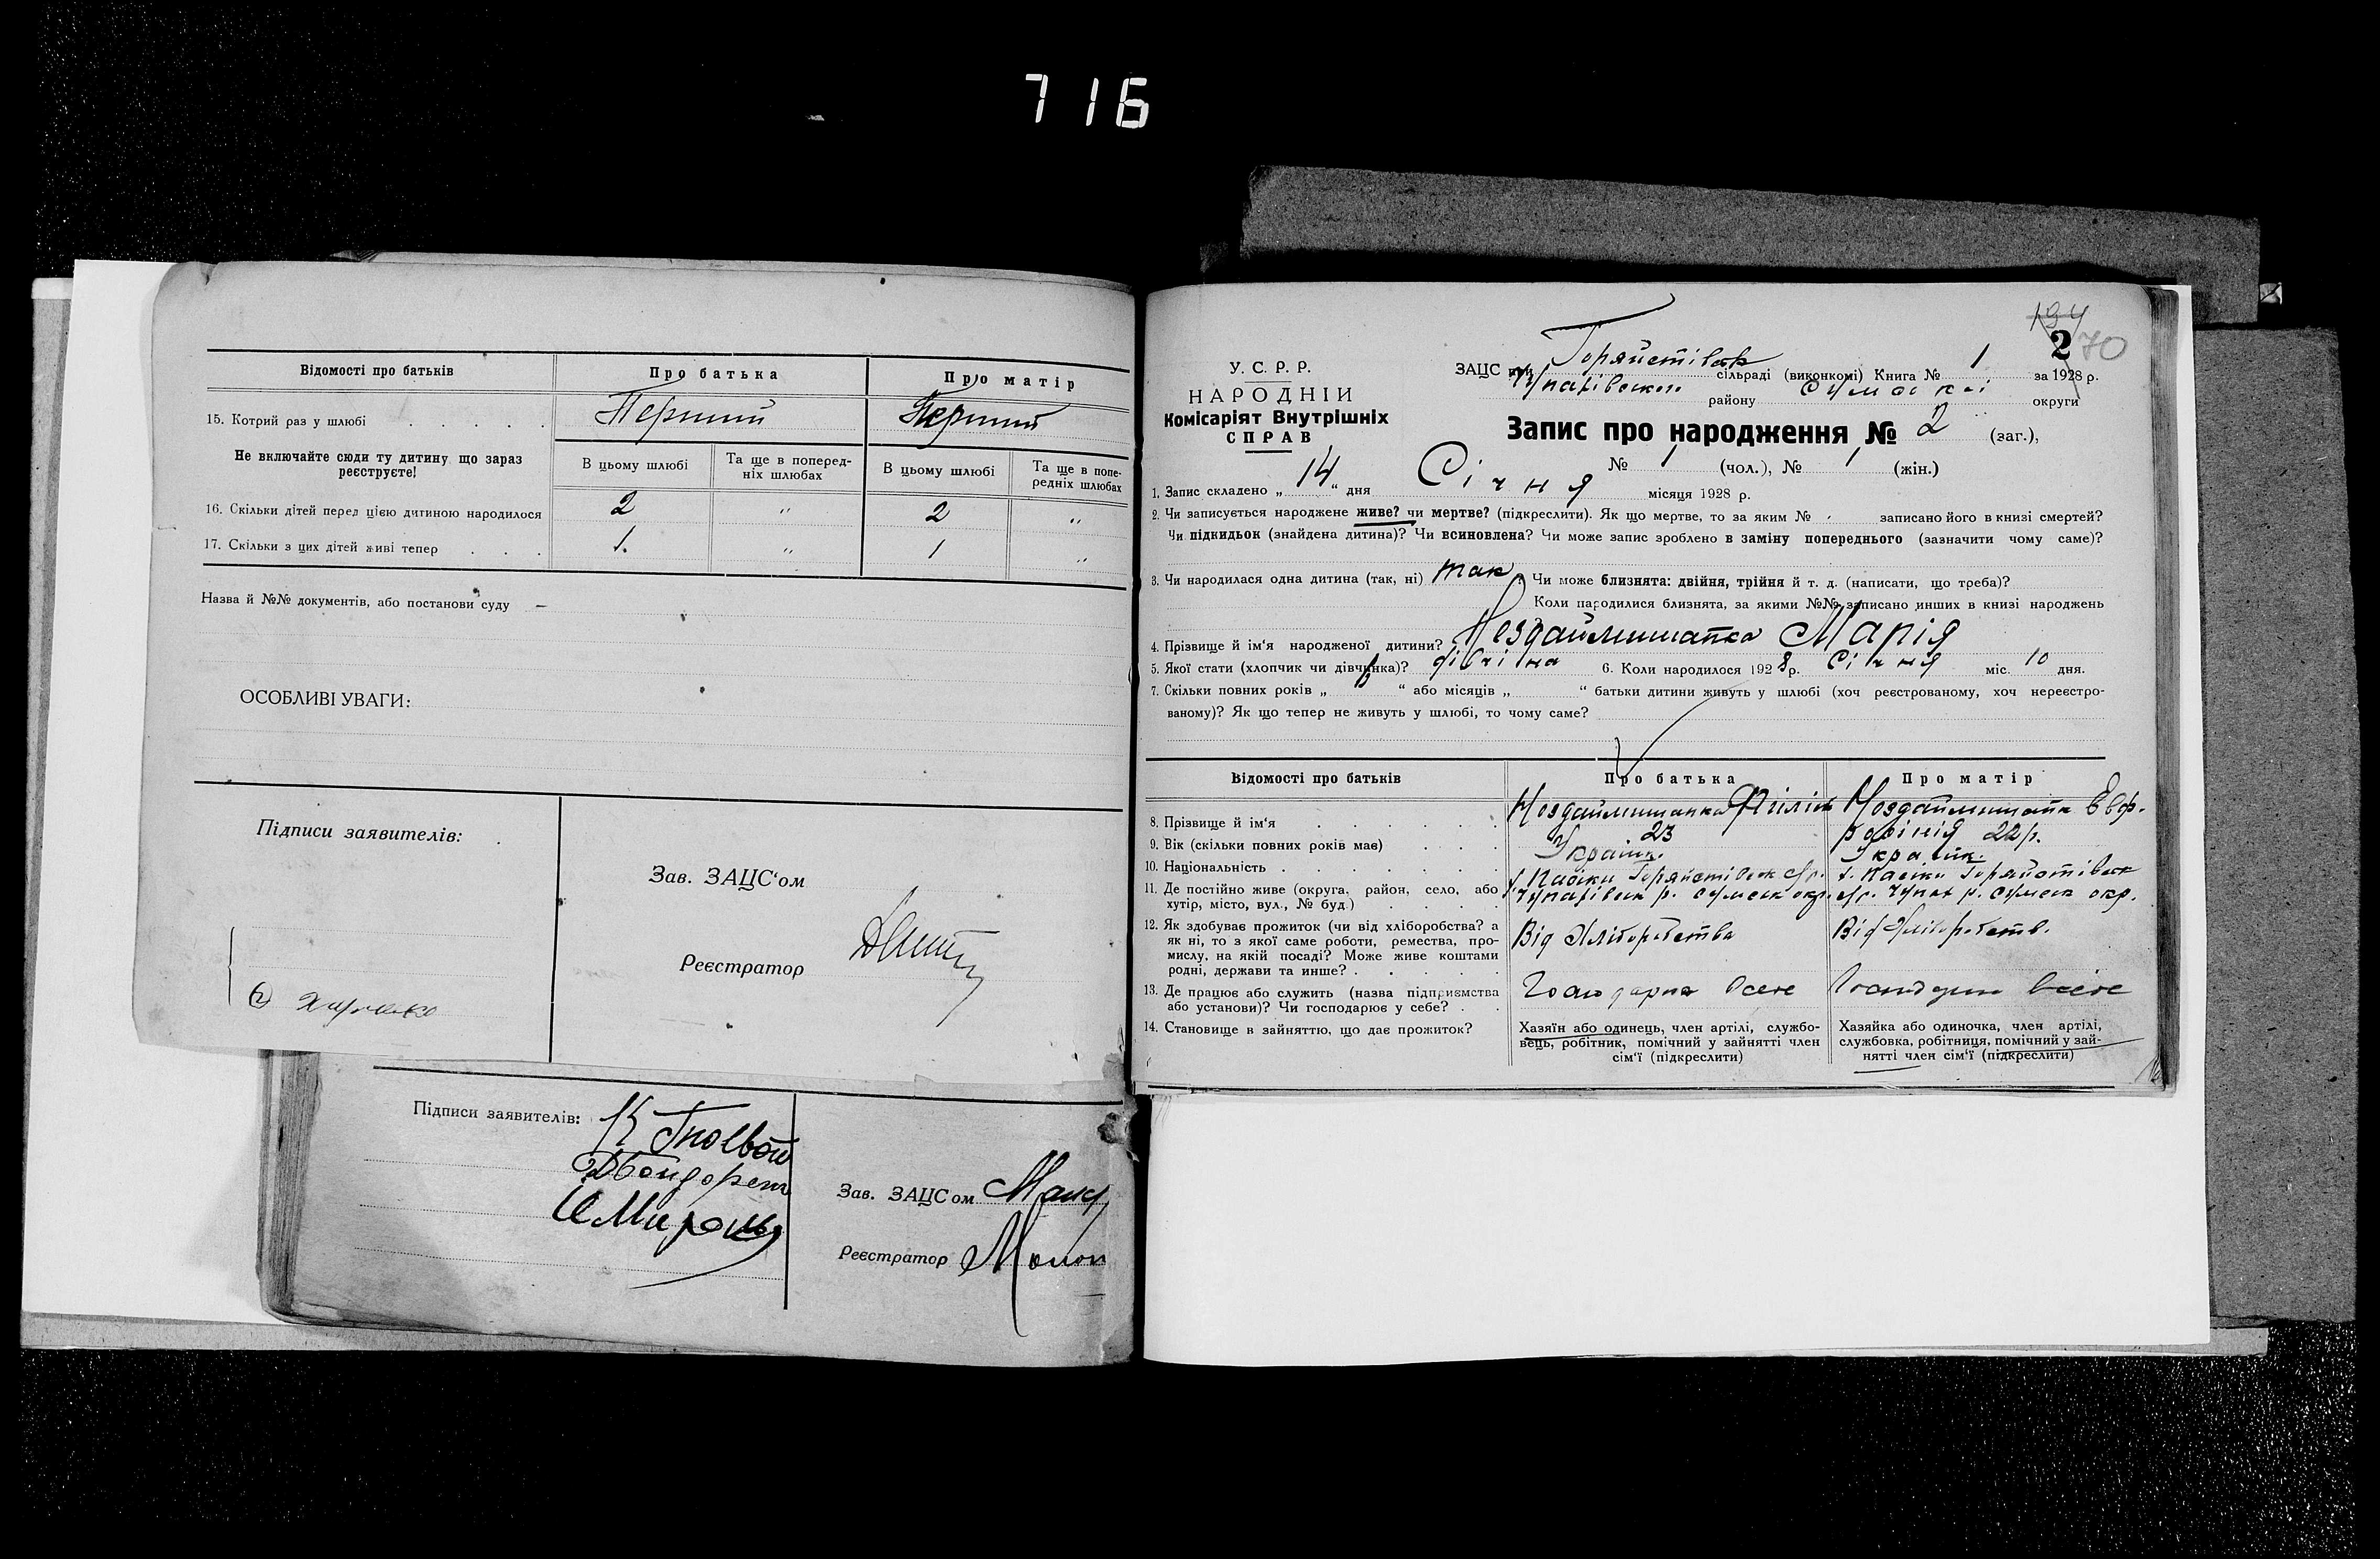 716
Відомості про батьків
Про батька
Про матір
15. Котрий раз у шлюбі . . . . .
Перший
Перший
Не включайте сюди ту дитину, що зараз
реєструєте!
В цьому шлюбі
Та ще в поперед-
ніх шлюбах
В цьому шлюбі
Та ще в попе-
редніх шлюбах
16. Скільки дітей перед цією дитиною народилося
2
"
2
"
17. Скільки з цих дітей живі тепер . . .
1.
"
1
"
Назва й №№ документів, або постанови суду —
ОСОБЛИВІ УВАГИ:
Підписи заявителів:
Зав. ЗАЦС'ом
Реєстратор
Підписи заявителів:
Зав. ЗАЦС'ом
Реєстратор
194
2 70
У. С. Р. Р.
НАРОДНІЙ
Комісаріят Внутрішніх
СПРАВ
ЗАЦС при Горяйстівск сільраді (виконкомі) Книга № 1 за 1928 р.
Чупахівського району Сумської округи
Запис про народження № 2 (заг.),
№ (чол.), № 1 (жін.)
1. Запис складено „ 14 “ дня Січня місяця 1928 р.
2. Чи записується народжене живе? чи мертве? (підкреслити). Як що мертве, то за яким № записано його в книзі смертей?
Чи підкидьок (знайдена дитина)? Чи всиновлена? Чи може запис зроблено в заміну попереднього (зазначити чому саме)?
3. Чи народилася одна дитина (так, ні) так. Чи може близнята: двійня, трійня й т. д. (написати, що треба)?
Коли народилися близнята, за якими №№ записано инших в книзі народжень
4. Прізвище й ім'я народженої дитини? Нездайминшапка Марія
5. Якої стати (хлопчик чи дівчинка)? дівчіна 6. Коли народилося 1928 р. Січня міс. 10 дня.
7. Скільки повних років „ “ або місяців „ “ батьки дитини живуть у шлюбі (хоч реєстрованому, хоч нереєстро-
ваному)? Як що тепер не живуть у шлюбі, то чому саме?
Відомості про батьків
Про батька
Про матір
8. Прізвище й ім'я . . . . . .
9. Вік (скільки повних років має) . . .
23
22 р.
10. Національність . . . . . . .
Україн.
Україн.
11. Де постійно живе (округа, район, село, або
хутір, місто, вул., № буд.) . . . .
х. Пасіки Горяйстівск с/р.
Чупахівск р. Сумськ окр.
х. Пасіки Горяйстівск
с/р. Чупах р. Сумськ окр.
12. Як здобуває прожиток (чи від хліборобства? а
як ні, то з якої саме роботи, ремества, про-
мислу, на якій посаді? Може живе коштами
родні, держави та инше? . . . . .
Від Хліборобства
Від Хліборобств.
13. Де працює або служить (назва підприємства
або установи)? Чи господарює у себе? . .
14. Становище в зайняттю, що дає прожиток?
Хазяїн або одинець, член артілі, службо-
вець, робітник, помічний у зайнятті член
сім'ї (підкреслити)
Хазяйка або одиночка, член артілі,
службовка, робітниця, помічний у зай-
нятті член сім'ї (підкреслити)